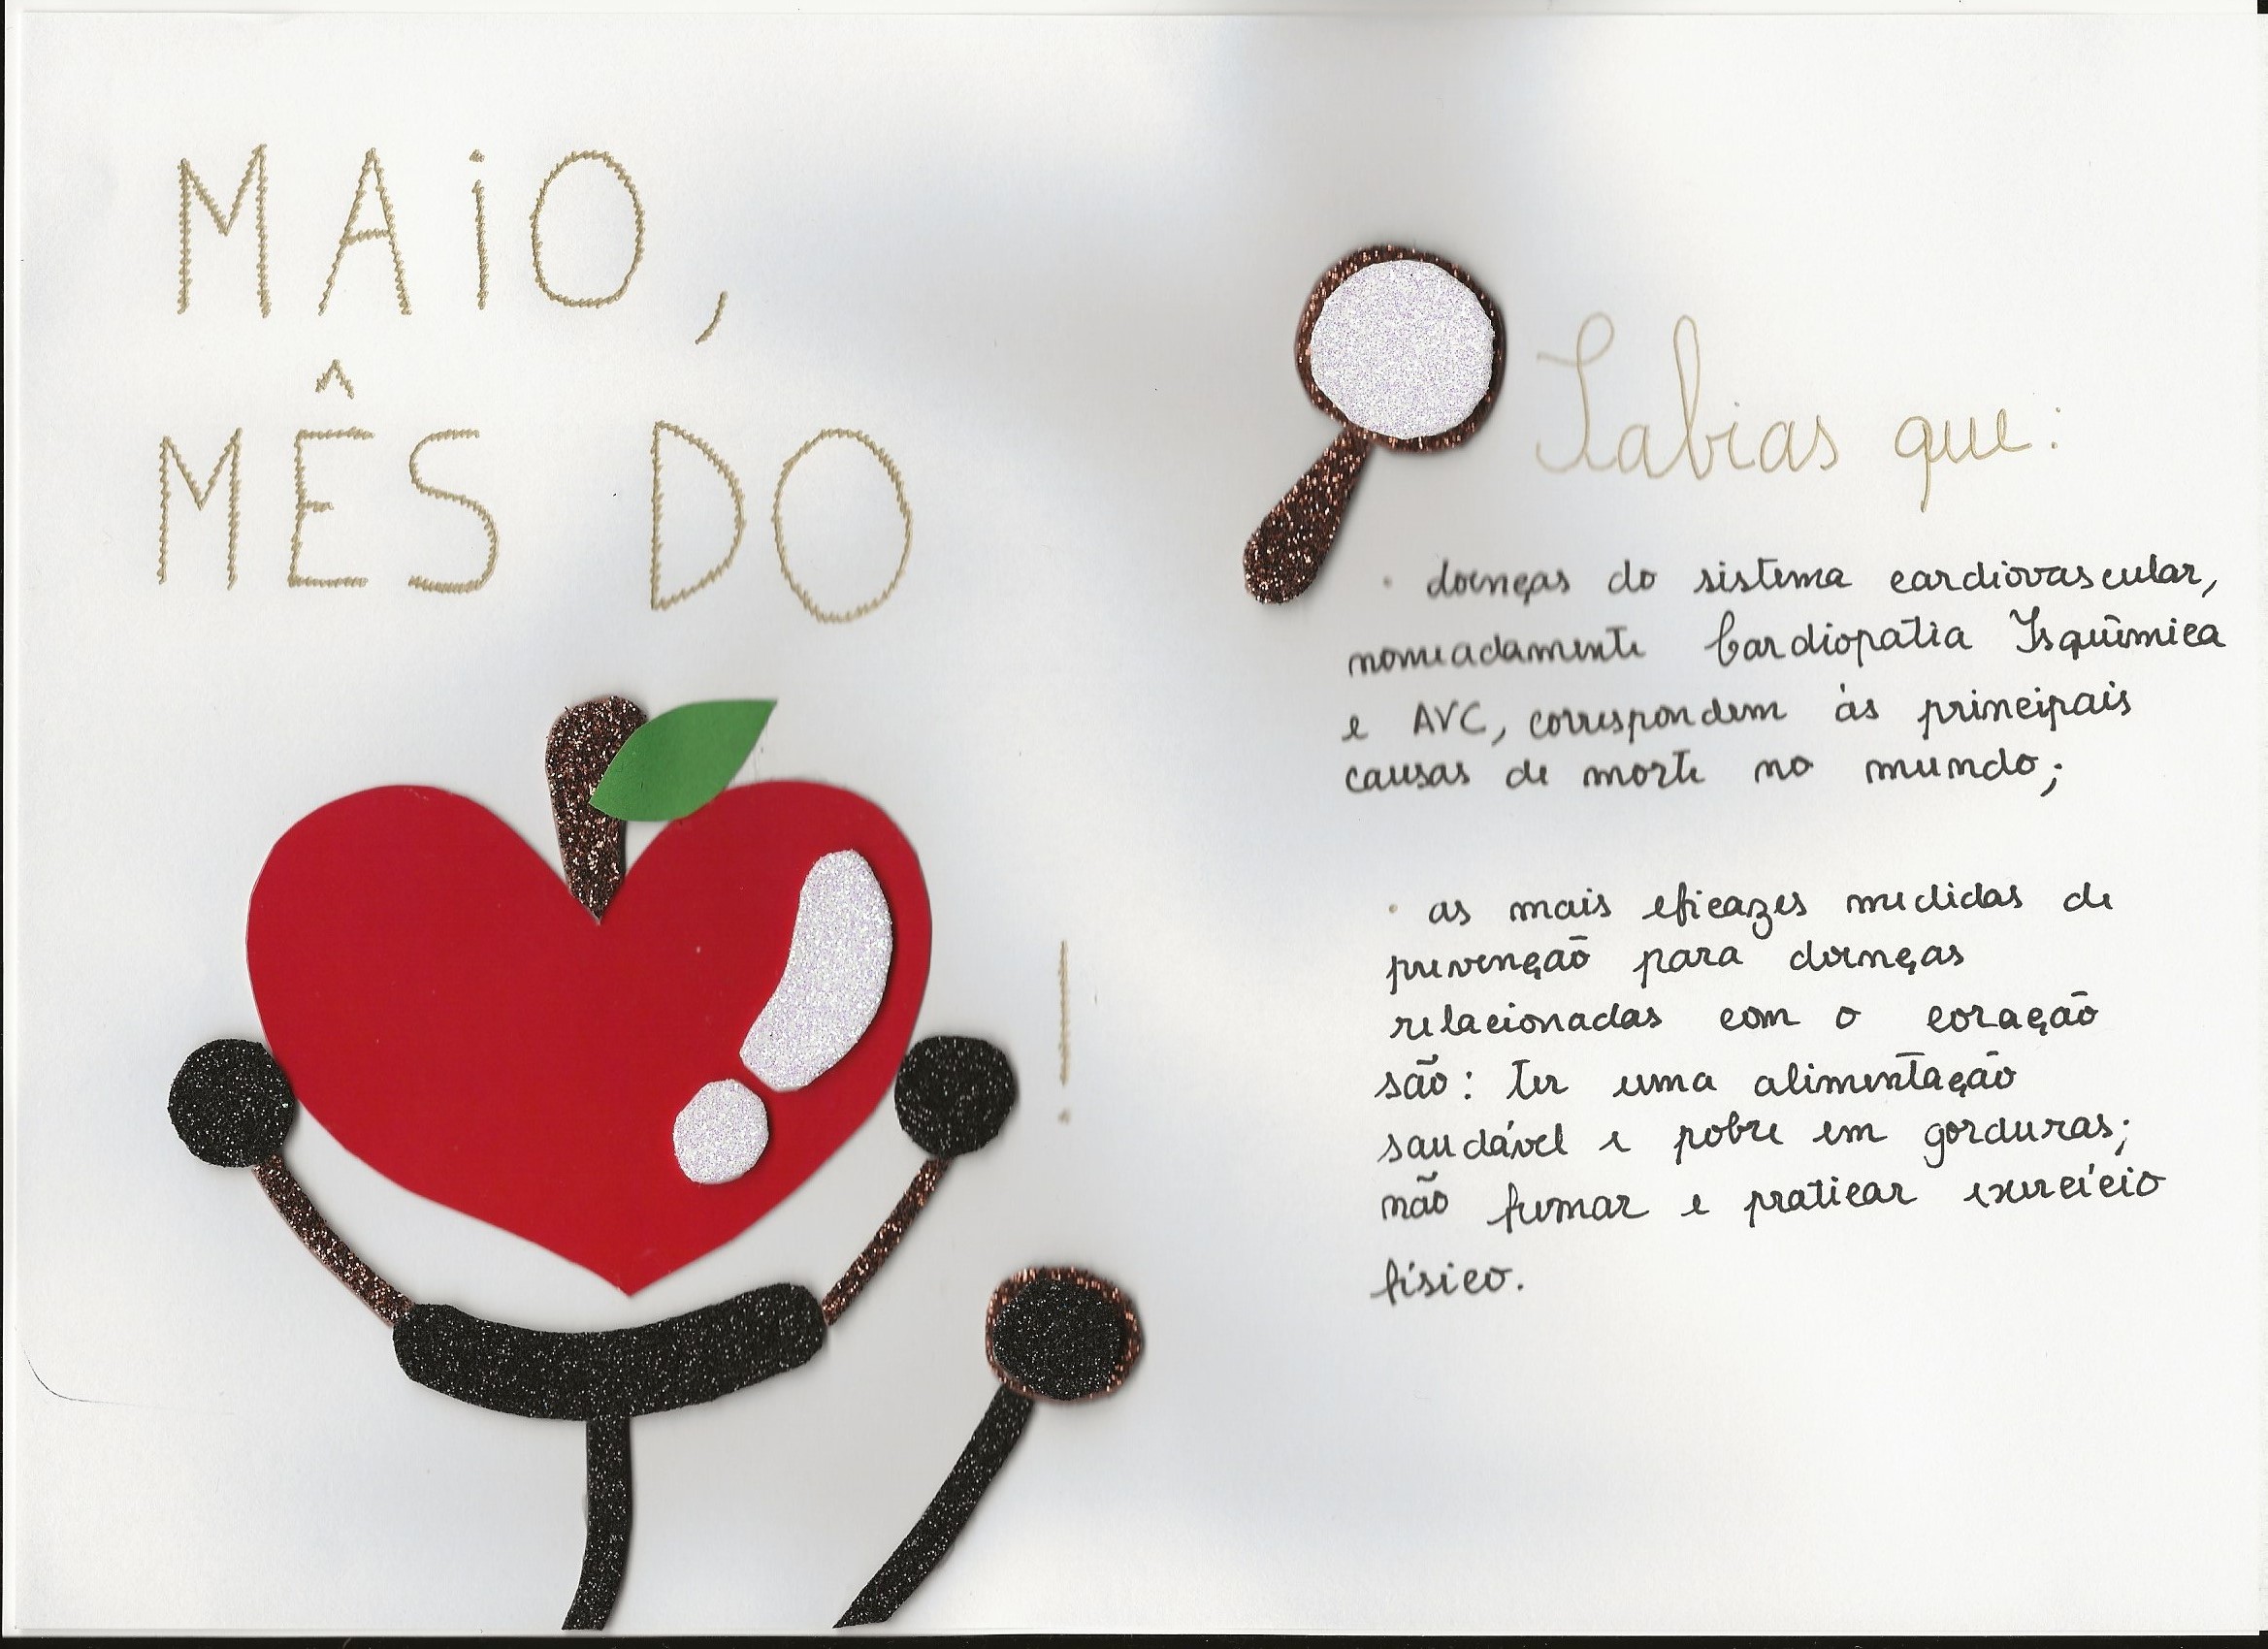 MAiO,
MÊS DO
!
Sabias que:
· doenças do sistema cardiovascular,
nomeadamente Cardiopatia Isquêmica
e AVC, correspondem às principais
causas de morte no mundo;
· as mais eficazes medidas de
prevenção para doenças
relacionadas com o coração
são: ter uma alimentação
saudável e pobre em gorduras;
não fumar e praticar exercício
físico.